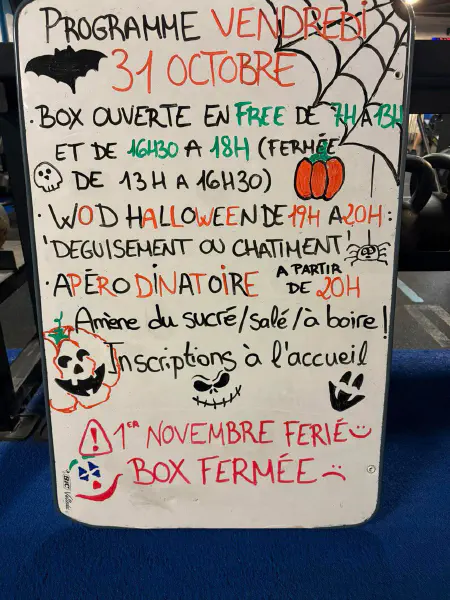 PROGRAMME VENDREDI
31 OCTOBRE
· BOX OUVERTE EN FREE DE 7H A 13H
ET DE 16H30 A 18H (FERMÉE
DE 13H A 16H30)
· WOD HALLOWEEN DE 19H A 20H :
'DEGUISEMENT OU CHATIMENT'
· APÉRO DINATOIRE A PARTIR
DE 20H
Amène du sucré/salé/à boire !
Inscriptions à l'accueil
1er NOVEMBRE FERIÉ
BOX FERMÉE